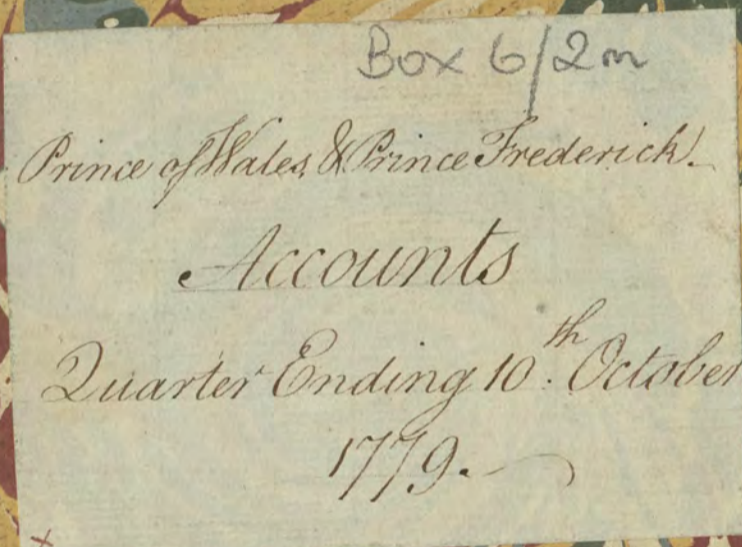 Box 6/2m
Prince of Wales, & Prince Frederick.
Accounts
Quarter Ending 10th. October
1779.